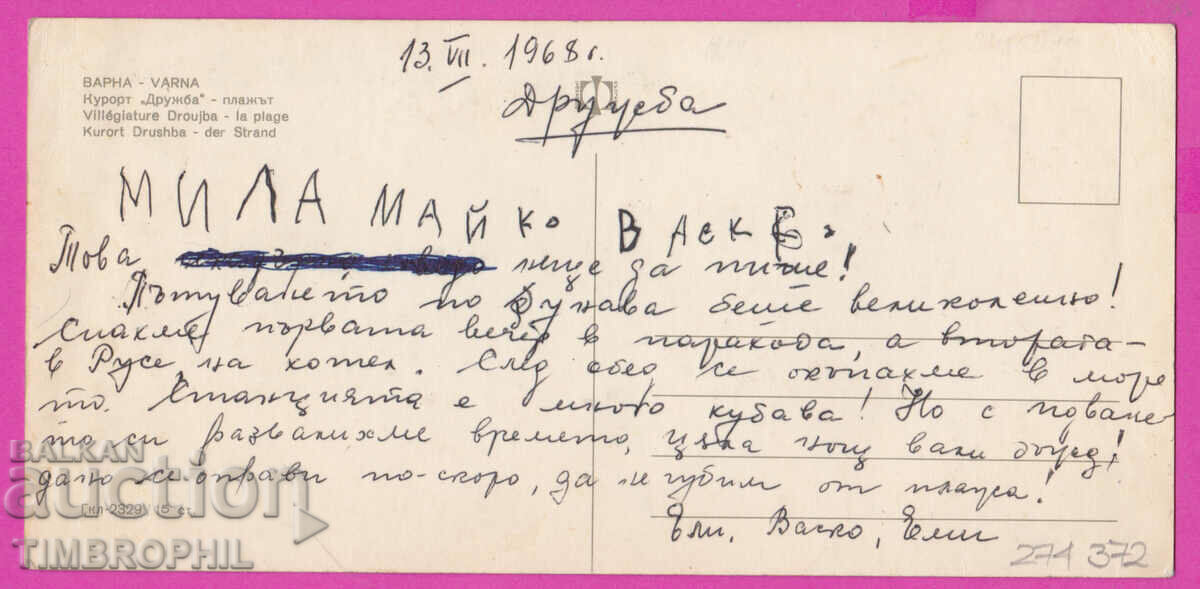 13. VII. 1968 г.
Дружба
ВАРНА - VARNA
Курорт „Дружба" - плажът
Villégiature Droujba - la plage
Kurort Drushba - der Strand
МИЛА МАЙКО ВАСКЕ,
Това нще да пише!
Пътуването по Дунава беше великолепно!
Спахме първата вечер в парахода, а втората -
в Русе, на хотел. След обед се окъпахме в море
то. Станцията е много хубава! Но с
то си развалихме времето, цяла нощ валя дъжд!
дано се оправи по-скоро, да не губим от плажа!
Ели, Васко, Еми
Гкл-2329V 15 ст.
274 372
BALKAN
auction
TIMBROPHIL